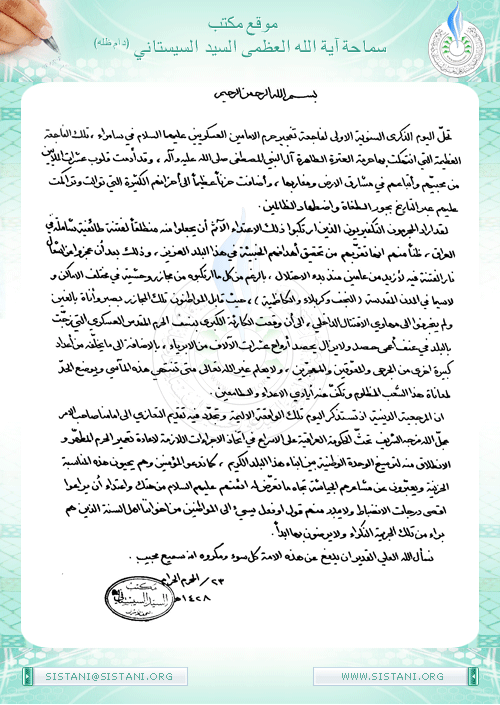 موقع مكتب
سماحة آية الله العظمى السيد السيستاني (دام ظله)
بسم الله الرحمن الرحيم
تحلّ اليوم الذكرى السنوية الاولى لفاجعة تفجير حرم الامامين العسكريين عليهما السلام في سامراء ، تلك الفاجعة
العظيمة التي انتهكت بها حرمة العترة الطاهرة آل النبي المصطفى صلى الله عليه وآله ، وقد أدمت قلوب عشرات الملايين
من محبيهم وأتباعهم في مشارق الارض ومغاربها ، وأضافت حزناً عظيماً الى أحزانهم الكثيرة التي توالت وتراكمت
عليهم عبر التاريخ بجور الطغاة واضطهاد الظالمين .
لقد أراد المجرمون التكفيريون الذين ارتكبوا ذلك الاعتداء الآثم أن يجعلوا منه منطلقاً لفتنة طائفية شاملة في
العراق ، ظناً منهم انها تقرّبهم من تحقيق أهدافهم الخبيثة في هذا البلد العزيز ، وذلك بعد أن عجزوا عن اشعال
نار الفتنة فيه لأزيد من عامين منذ بدء الاحتلال ، بالرغم من كل ما ارتكبوه من مجازر وحشية في مختلف الاماكن و
لاسيما في المدن المقدسة ( النجف وكربلاء والكاظمية ) ، حيث قابل المواطنون تلك المجازر بصبر وأناة بالغين
ولم ينجرفوا الى مهاوي الاقتتال الداخلي ، الى أن وقعت الكارثة الكبرى بنسف الحرم المقدس العسكري التي زجّت
بالبلد في عنف أعمى حصد ولا يزال يحصد أرواح عشرات الآلاف من الابرياء ، بالاضافة الى ما يخلّفه من أعداد
كبيرة اخرى من الجرحى والمعوّقين والمهجّرين ، ولا يعلم غير الله تعالى متى تنتهي هذه المآسي ويوضع الحدّ
لمعاناة هذا الشعب المظلوم وتكفّ عنه أيادي الاعداء والطامعين .
ان المرجعية الدينية اذ تستذكر اليوم تلك الواقعة الاليمة وتجدّد فيه تقديم التعازي الى امامنا صاحب الامر
عجّل الله فرجه الشريف تحثّ الحكومة العراقية على الاسراع في اتخاذ الاجراءات اللازمة لاعادة تعمير الحرم المطهّر و
الانطلاق منه لترسيخ الوحدة الوطنية بين أبناء هذا البلد الكريم ، كما تدعو المؤمنين وهم يحيون هذه المناسبة
الحزينة ويعبّرون عن مشاعرهم الجياشة تجاه ما تعرّض له أئمتهم عليهم السلام من هتك واعتداء أن يراعوا
اقصى درجات الانضباط ولا يبدر منهم قول أو فعل يسيء الى المواطنين من اخواننا اهل السنة الذين هم
براء من تلك الجريمة النكراء ولا يرضون بها ابداً .
نسأل الله العلي القدير ان يدفع عن هذه الامة كل سوء ومكروه انه سميع مجيب .
٢٣ / المحرم الحرام
١٤٢٨هـ
مكتب
السيد السيستاني
SISTANI@SISTANI.ORG
WWW.SISTANI.ORG